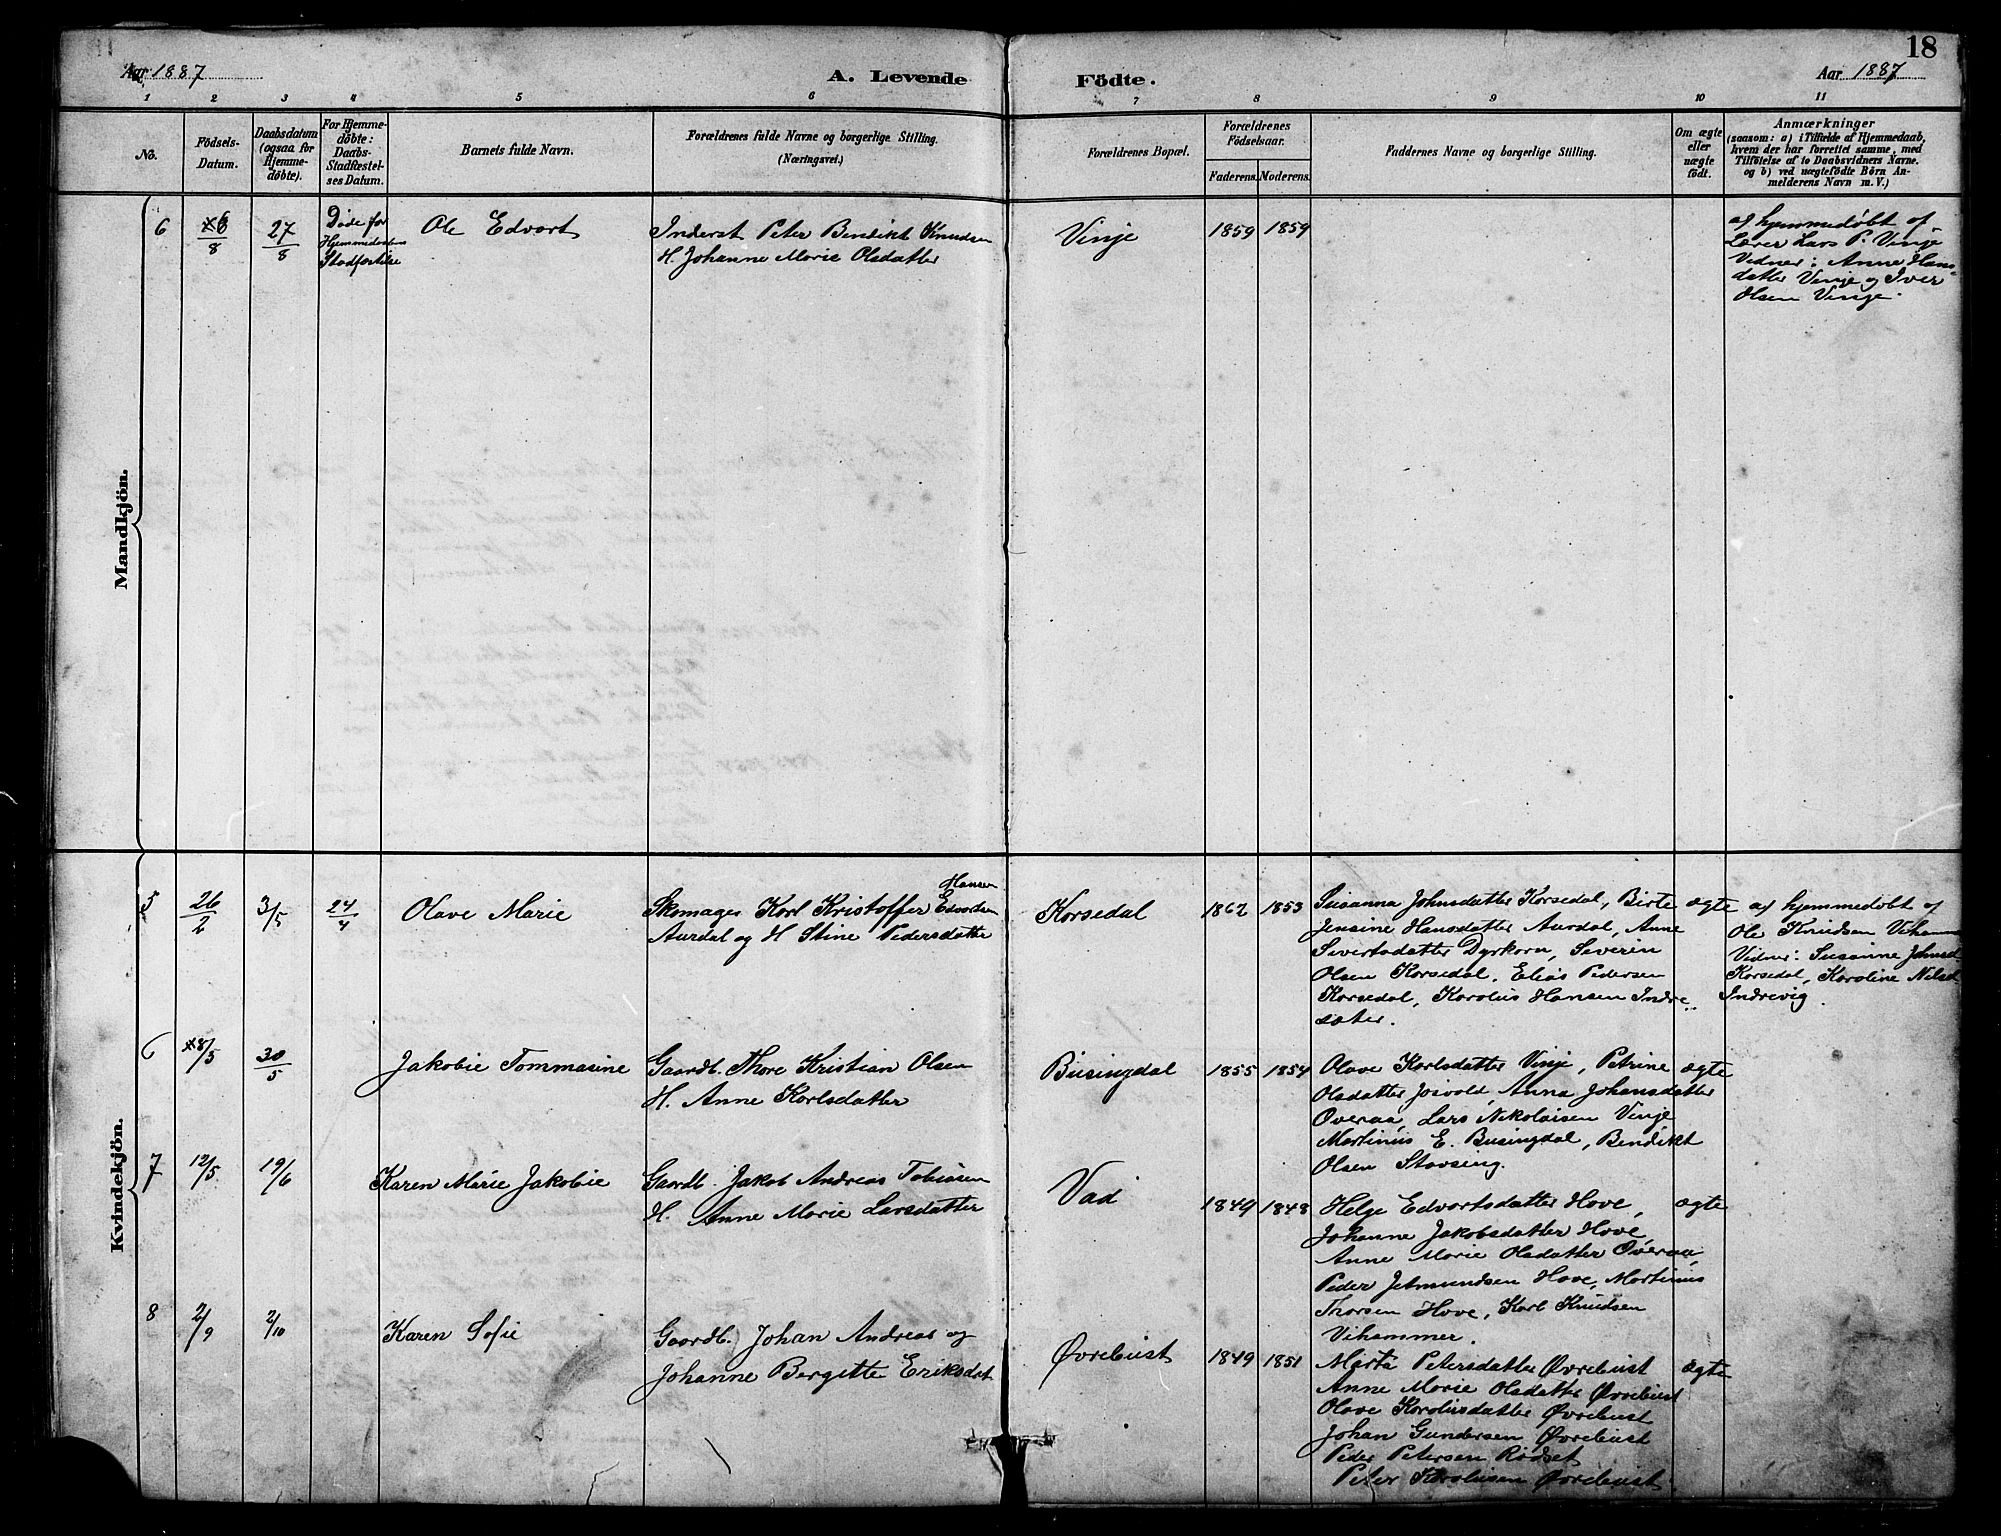 18
Aar 1887
A. Levende
Födte.
Aar 1887
1 2 3 4 5 6 7 8 9 10 11
No.
Födsels-
Datum.
Daabsdatum
(ogsaa for
Hjemme-
døbte).
For Hjemme-
døbte:
Daabs-
Stadfæstel-
ses Datum.
Barnets fulde Navn.
Forældrenes fulde Navne og borgerlige Stilling.
(Næringsvei.)
Forældrenes Bopæl.
Forældrenes
Födselsaar.
Faderens. Moderens.
Faddernes Navne og borgerlige Stilling.
Om ægte
eller
uægte
født.
Anmærkninger
(saasom: a) i Tilfælde af Hjemmedaab,
hvem der har forrettet samme, med
Tilföielse af to Daabsvidners Navne.
og b) ved uægtefödte Börn An-
melderens Navn m.V.)
Mandkjön.
6
6/8
27/8
Døde før
Hjemmedaabens
Stadfæstelse
Ole Edvart
Inderst Peter Bendikt Knudsen
H. Johanne Marie Olsdatter
Vinje
1859 1859
a) hjemmedøbt af
Lærer Lars P. Vinje
Vidner: Anne Hans-
datter Vinje og Iver
Olsen Vinje.
Kvindekjön.
5
26/2
3/5
24/4
Olave Marie
Hansen
Skomager Karl Kristoffer Edvardsen
Aurdal og H. Stine Pedersdatter
Korsedal
1862 1853
Susanna Johnsdatter Korsedal, Birte
Jensine Hansdatter Aurdal, Anne
Sivertsdatter Dyrkorn, Severin
Olsen Korsedal, Elias Pedersen
Korsedal, Karolus Hansen Indre
sæter.
ægte
a) hjemmedøbt af
Ole Knudsen Vihamm
Vidner: Susanne Johnsd
Korsedal, Karoline Nilsd
Indrevig.
6
8/5
30/5
Jakobie Tommasine
Gaardb. Thore Kristian Olsen
H. Anne Karlsdatter
Busingdal
1855 1854
Olave Karlsdatter Vinje, Petrine
Olsdatter Josvold, Anna Johansdatter
Overaa, Lars Nikolaisen Vinje
Martinus E. Busingdal, Bendikt
Olsen Stavseng.
ægte
7
12/5
19/6
Karen Marie Jakobie
Gaardb. Jakob Andreas Tobiasen
H. Anne Marie Larsdatter
Vad
1849 1848
Helge Edvartsdatter Hove,
Johanne Jakobsdatter Hove,
Anne Marie Olsdatter Overaa,
Peder Jetmundsen Hove, Martinus
Thorsen Hove, Karl Knudsen
Vihammer.
ægte
8
2/9
2/10
Karen Sofie
Gaardb. Johan Andreas og
Johanne Bergitte Eriksdat.
Øvrebust
1849 1851
Marta Petersdatter Øvrebust
Anne Marie Olsdatter Øvrebust
Olave Karolusdatter Øvrebust
Johan Gundersen Øvrebust
Peder Petersen Rødset
Peter Karolusen Øvrebust.
ægte